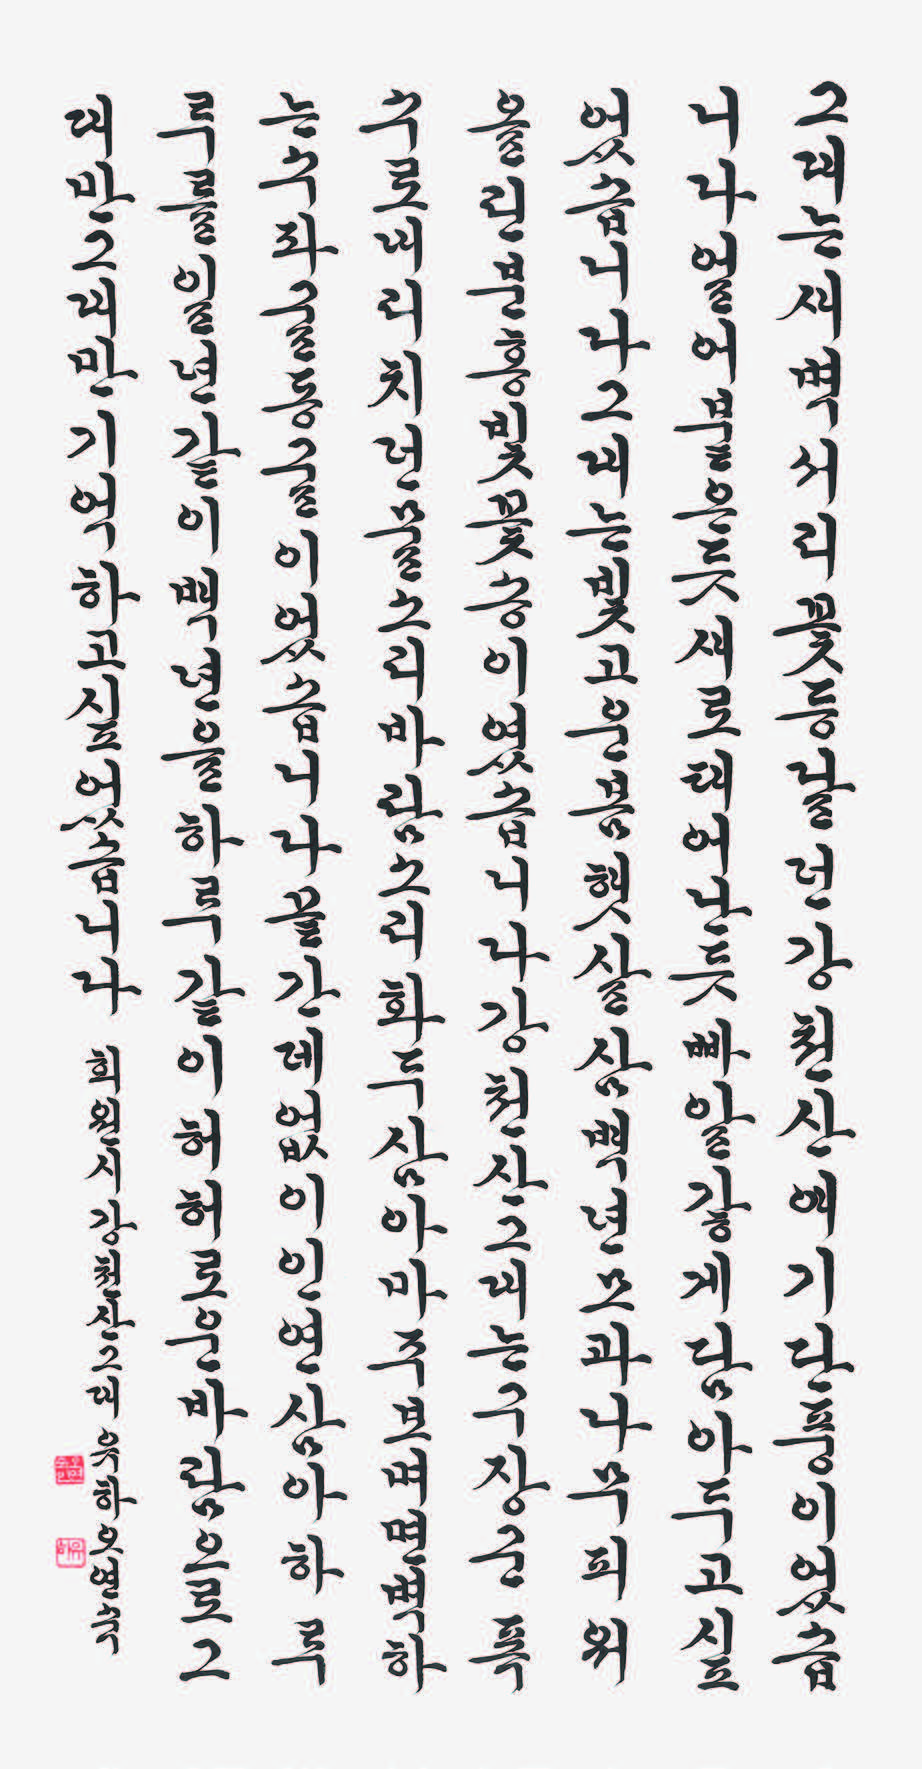 그대는새벽서리꽃등달던강천산애기단풍이었습
니다얼어붙은듯새로태어난듯빠알갛게담아두고싶
었습니다그대는빛고운봄햇살삼백년모과나무피워
올린분홍빛꽃송이였습니다강천산그대는구장군폭
수로내리치던물소리바람소리화두삼아마주보며면벽하
는수좌굴동굴이었습니다끝간데없이인연삼아하루
루를일년같이백년을하루같이허허로운바람으로그
대만그대만기억하고싶었습니다 희원시강천산그대 유하오연숙